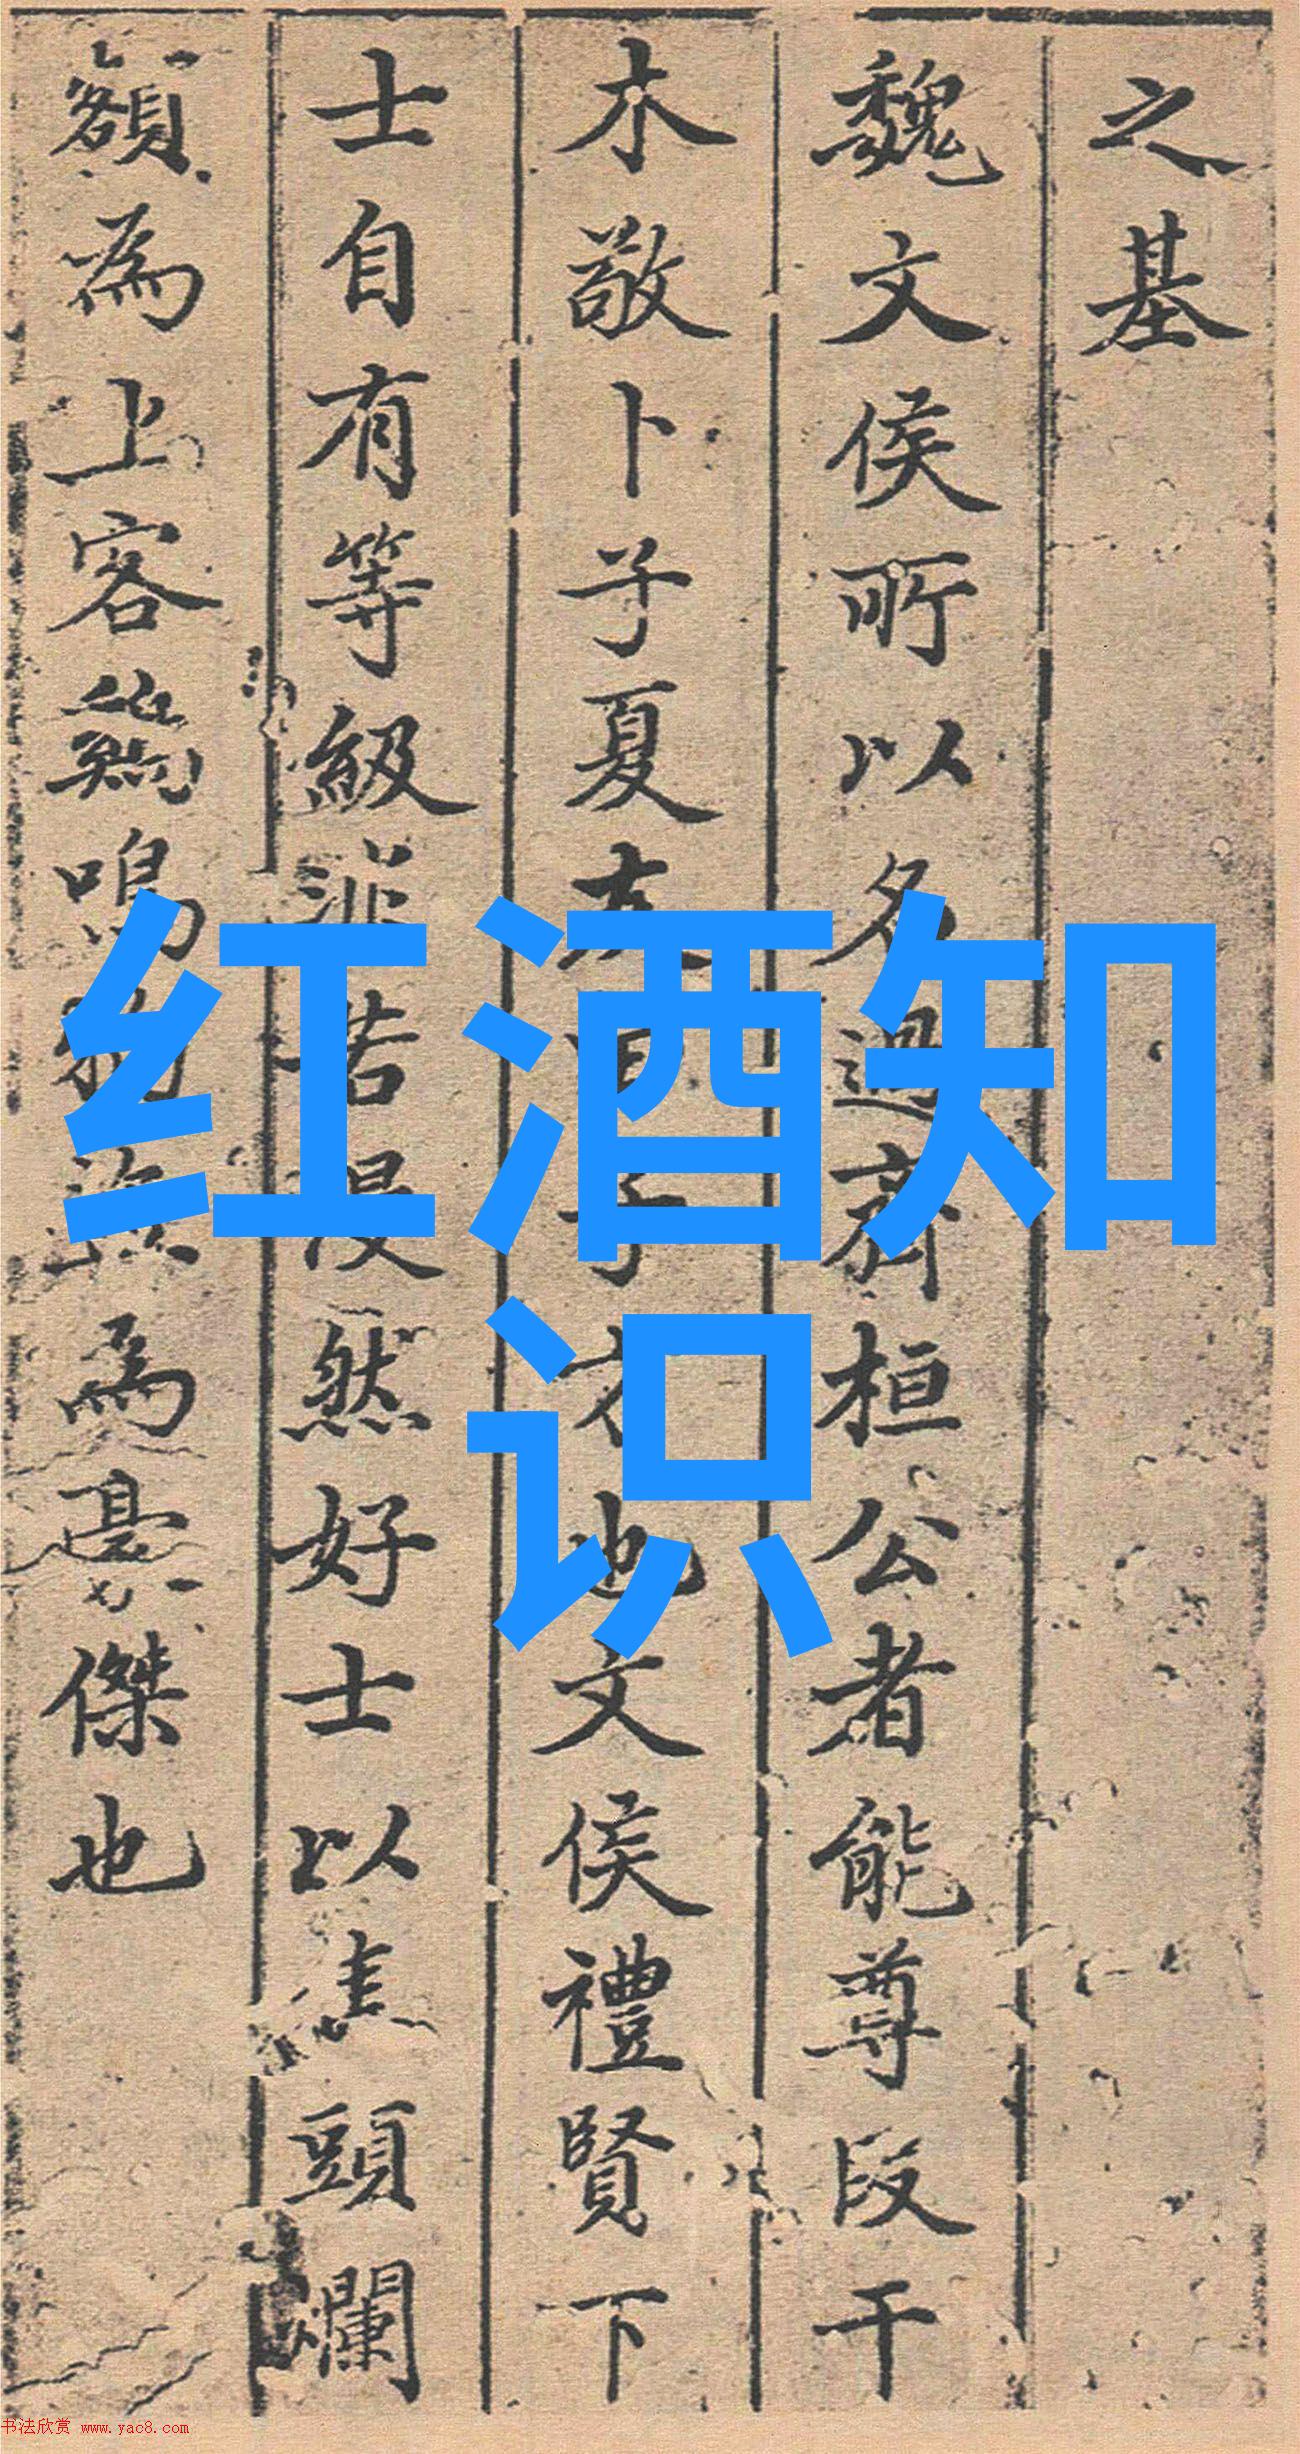 之基
魏文侯所以名過齊桓公者能尊段干
木敬卜子夏友田子方也文侯禮賢下
士自有等級非若漫然好士以焦頭爛
額為上客鷄鳴狗盜為豪傑也
红酒知
识
书法欣赏 www.yac8.com